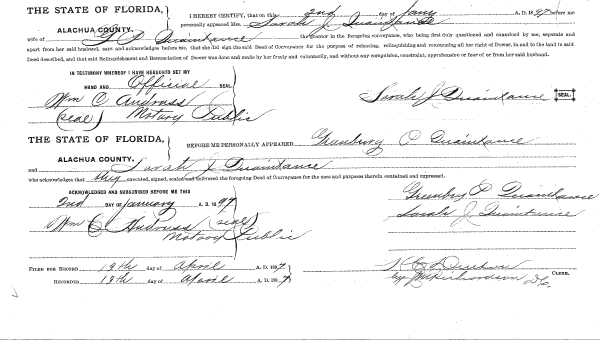 THE STATE OF FLORIDA,
ALACHUA COUNTY.
I HEREBY CERTIFY, that on this 2nd day of Jany A. D. 1897 before me
personally appeared Mrs. Sarah J Quaintance
wife of G P Quaintance the grantor in the foregoing conveyance, who being first duly questioned and examined by me, separate and
apart from her said husband, says and acknowledges before me, that she did sign the said Deed of Conveyance for the purpose of releasing, relinquishing and renouncing all her right of Dower, in and to the land in said
Deed described, and that said Relinquishment and Renunciation of Dower was done and made by her freely and voluntarily, and without any compulsion, constraint, apprehension or fear of or from her said husband.
IN TESTIMONY WHEREOF I HAVE HEREUNTO SET MY
HAND AND Official SEAL
Wm C Andruss
(Seal) Notary Public
Sarah J Quaintance SEAL.
THE STATE OF FLORIDA,
ALACHUA COUNTY.
BEFORE ME PERSONALLY APPEARED Greenbury P Quaintance
and Sarah J Quaintance
who acknowledges that they executed, signed, sealed and delivered the foregoing Deed of Conveyance for the uses and purposes therein contained and expressed.
ACKNOWLEDGED AND SUBSCRIBED BEFORE ME THIS
2nd DAY OF January A. D. 1897
Wm C Andruss (Seal)
Notary Public
Greenbury P Quaintance
Sarah J Quaintance
FILED FOR RECORD 19th day of April A. D. 1897
RECORDED 19th day of April A. D. 1897
CLERK.
by Richardson D.C.